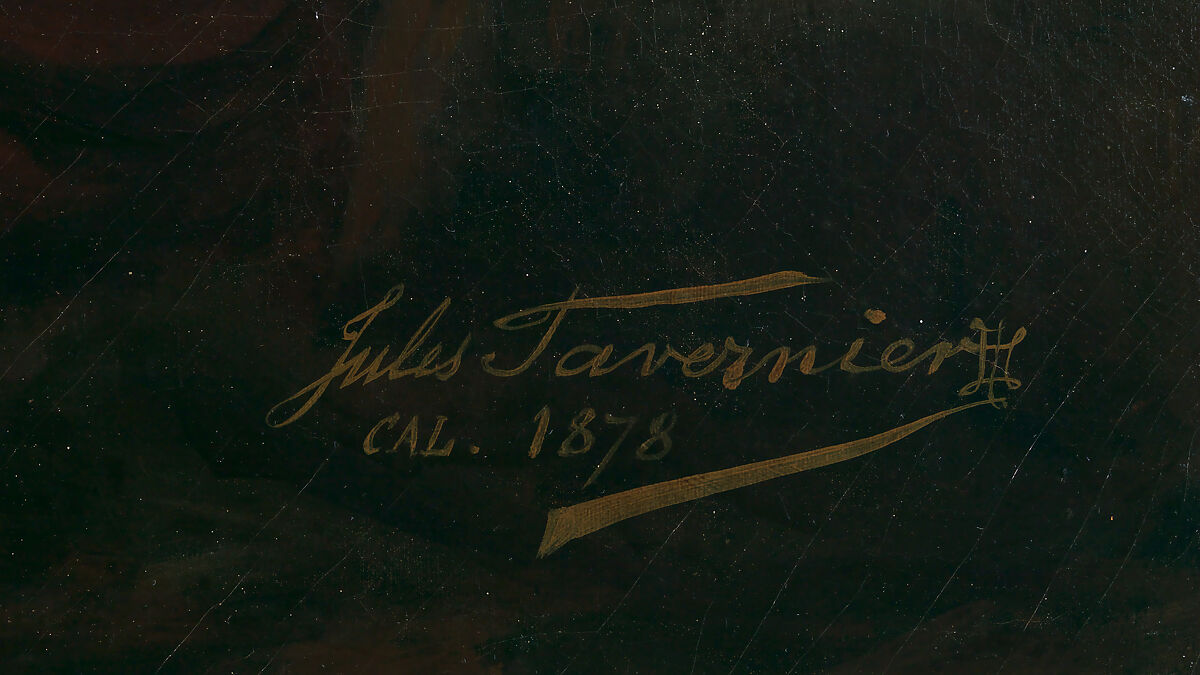 Jules Tavernier
CAL. 1878